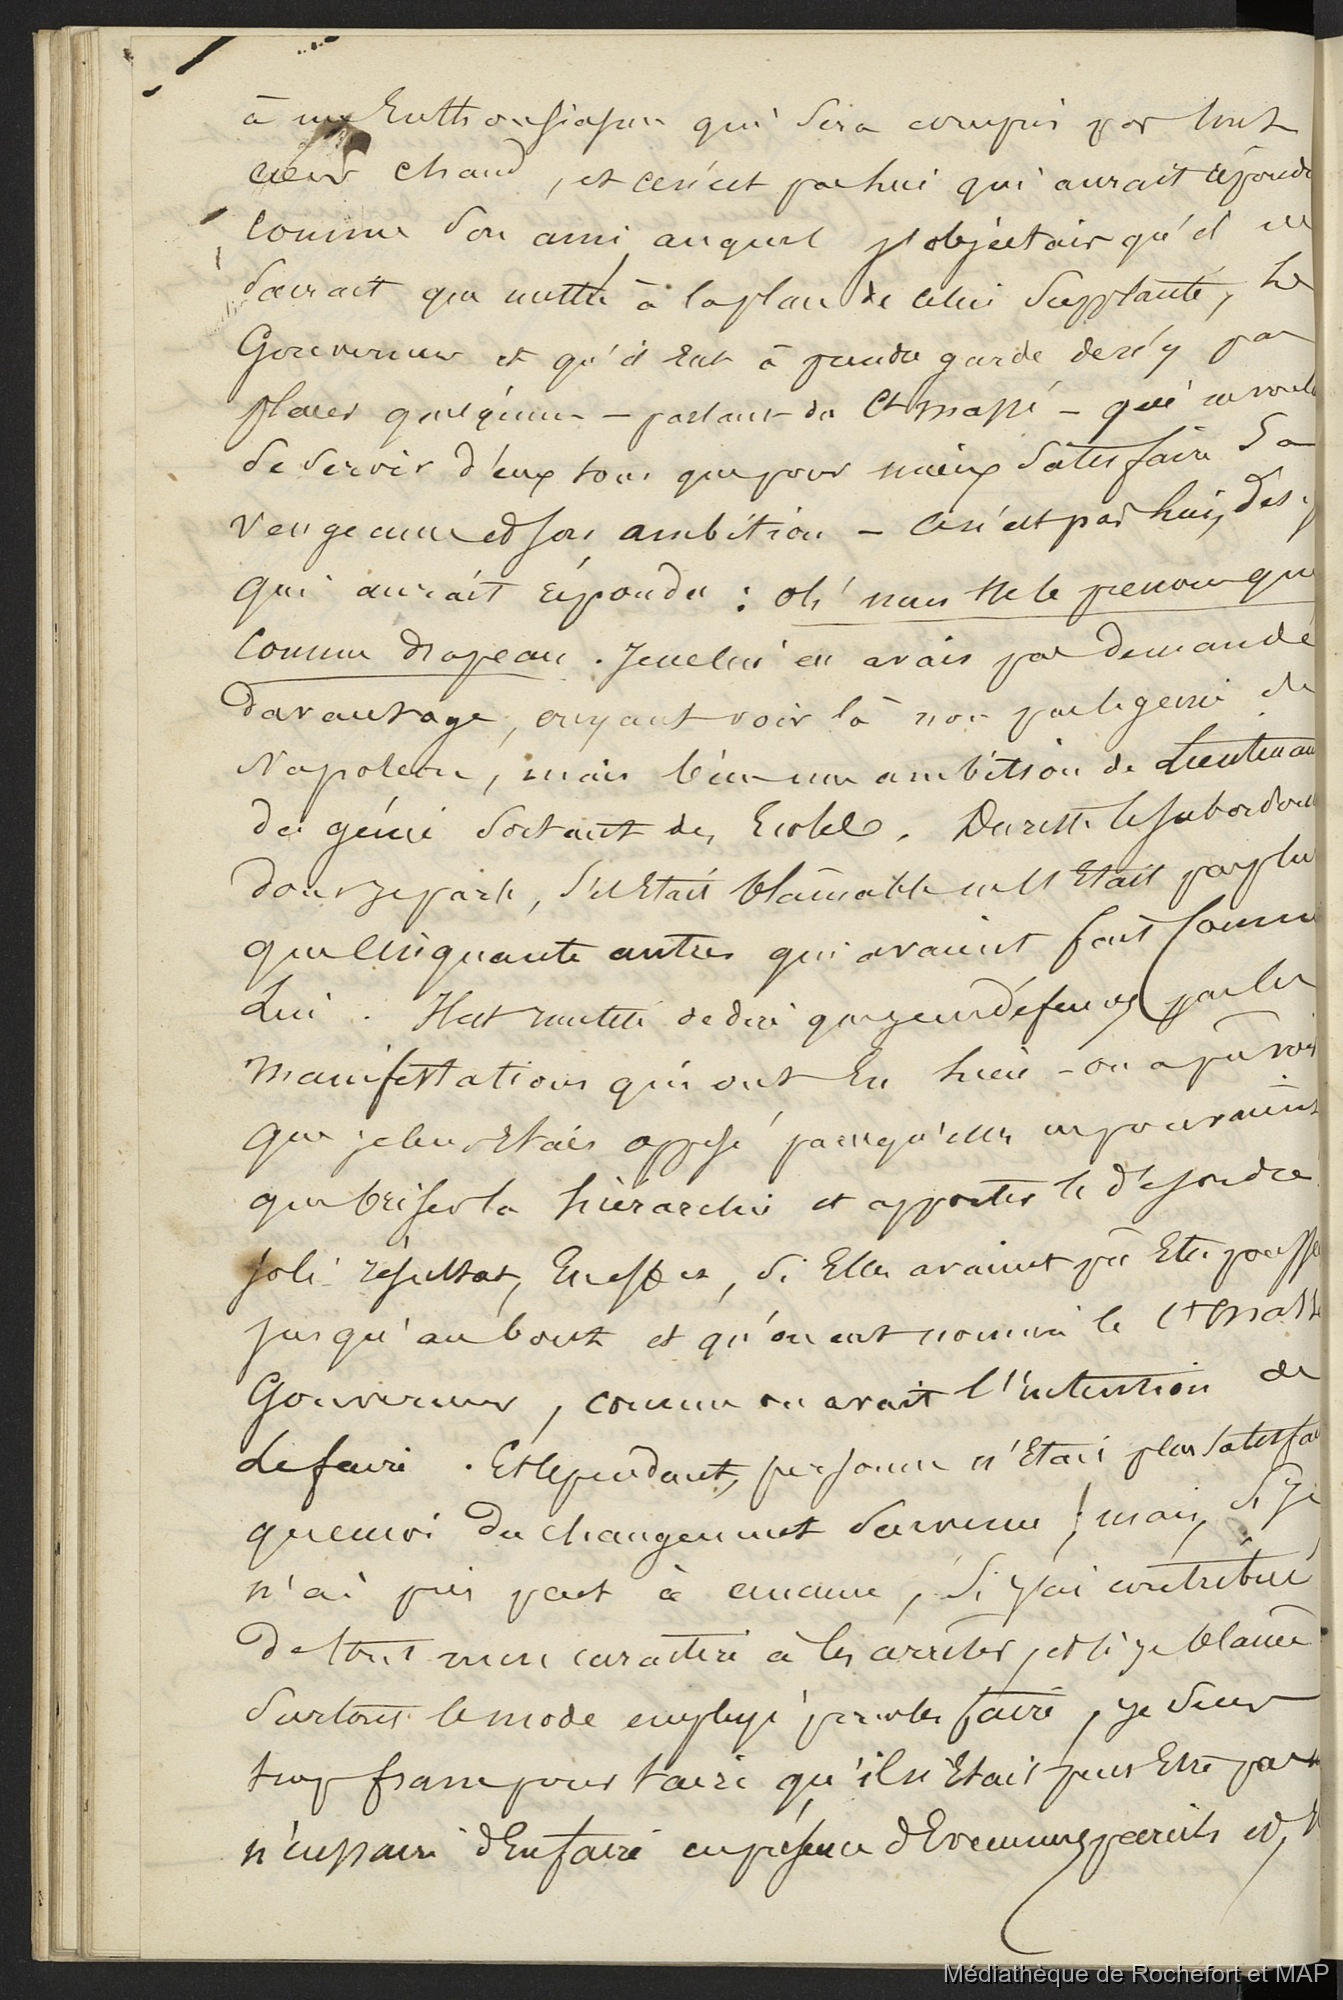 à un Enthousiasme qui sera compris par tout
cœur chaud, et ce n'est pas lui qui aurait répondu
comme son ami auquel j'objectais qu'il ne
saurait que mettre à la place de celui supplanté, le
Gouverneur et qu'il eut à prendre garde de n'y pas
placer quelqu'un - parlant du Ct Massé - qui ne voulut
se servir d'eux tous que pour mieux satisfaire sa
vengeance et son ambition - ce n'est pas lui, dis-je
qui aurait répondu : oh! nous ne le prenons que
comme drapeau. Je ne lui en avais pas demandé
davantage, croyant voir là non pas le génie de
Napoléon, mais bien une ambition de Lieutenant
du génie sortant des Ecoles. Du reste le subordonné
dont je parle, s'il était blâmable ne l'Etait pas plus
que cinquante autres qui avaient fait comme
Lui. Il est inutile de dire que je ne défends pas les
manifestations qui ont Eu lieu - on a pu voir
que je leur Etais opposé parce qu'elles ne pouvaient
que briser la hiérarchie et apporter le désordre
joli résultat, En effet, si Elles avaient pu Etre poussées
jusqu'au bout et qu'on eut nommé le Ct Massé
Gouverneur, comme on avait l'intention de
Le faire. Et cependant, personne n'Etait plus satisfait
que moi du changement survenu ; mais, si je
n'ai pris part à aucune, si j'ai contribué
de tout mon caractère à les arrêter, et si je blâme
surtout le mode employé pour les faire, je suis
trop franc pour taire qu'il n'Etait peut Etre pas
nécessaire d'En faire en présence d'Evénements pareils et,
Médiathèque de Rochefort et MAP